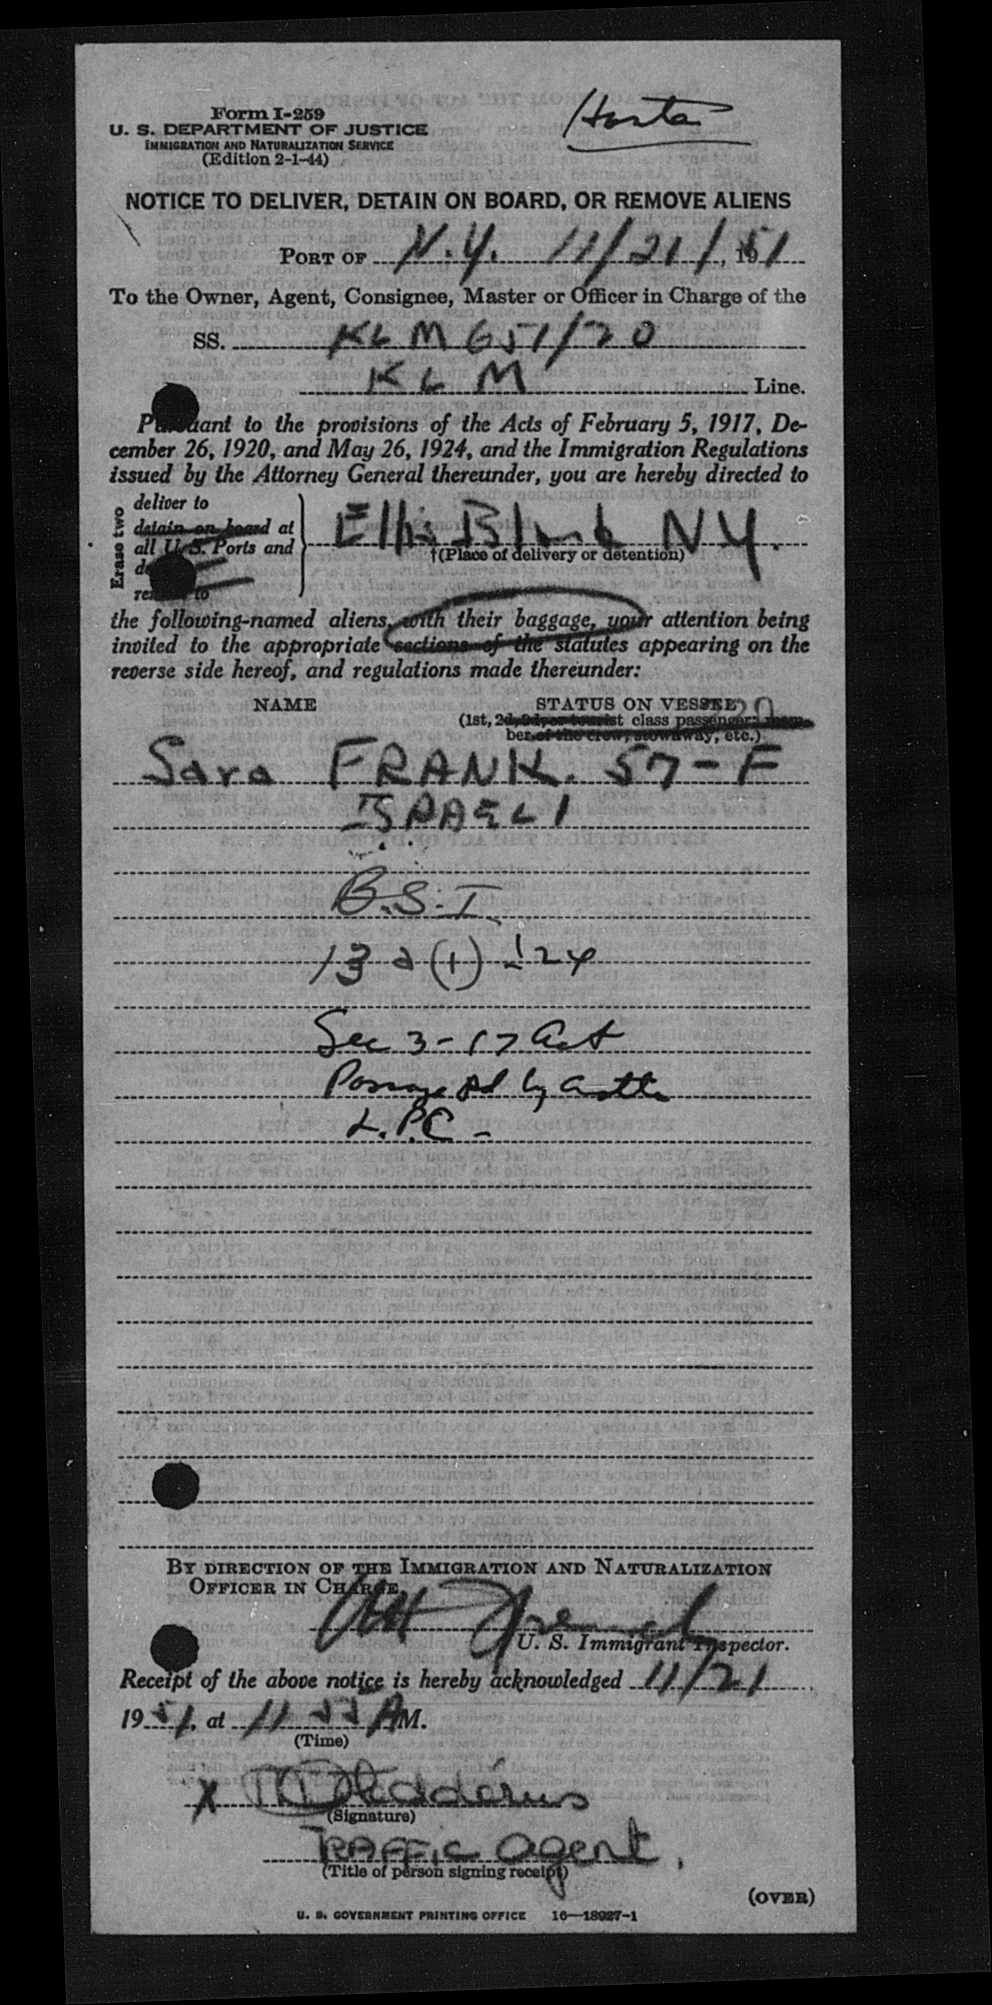 Form I-259
U. S. DEPARTMENT OF JUSTICE
IMMIGRATION AND NATURALIZATION SERVICE
(Edition 2-1-44)
NOTICE TO DELIVER, DETAIN ON BOARD, OR REMOVE ALIENS
PORT OF N.Y. 11/21/, 1951
To the Owner, Agent, Consignee, Master or Officer in Charge of the
SS. KLM 651/20
KLM Line.
Pursuant to the provisions of the Acts of February 5, 1917, De-
cember 26, 1920, and May 26, 1924, and the Immigration Regulations
issued by the Attorney General thereunder, you are hereby directed to
Erase two
deliver to
detain on board at
all U.S. Ports and
to
Ellis Island NY.
†(Place of delivery or detention)
the following-named aliens, with their baggage, your attention being
invited to the appropriate sections of the statutes appearing on the
reverse side hereof, and regulations made thereunder:
NAME STATUS ON VESSEL
(1st, 2d, 3d, or tourist class passenger; mem-
ber of the crew, stowaway, etc.)
Sara FRANK. 57-F
ISRAELI
B.S.I.
13 a (1) - '24
Sec 3-17 Act
Passage Pd by
L.P.C -
BY DIRECTION OF THE IMMIGRATION AND NATURALIZATION
OFFICER IN CHARGE.
U. S. Immigrant Inspector.
Receipt of the above notice is hereby acknowledged 11/21
1951, at 11 55 AM.
(Time)
X
(Signature)
TRAFFIC Agent.
(Title of person signing receipt)
(OVER)
U. S. GOVERNMENT PRINTING OFFICE 16—18927-1